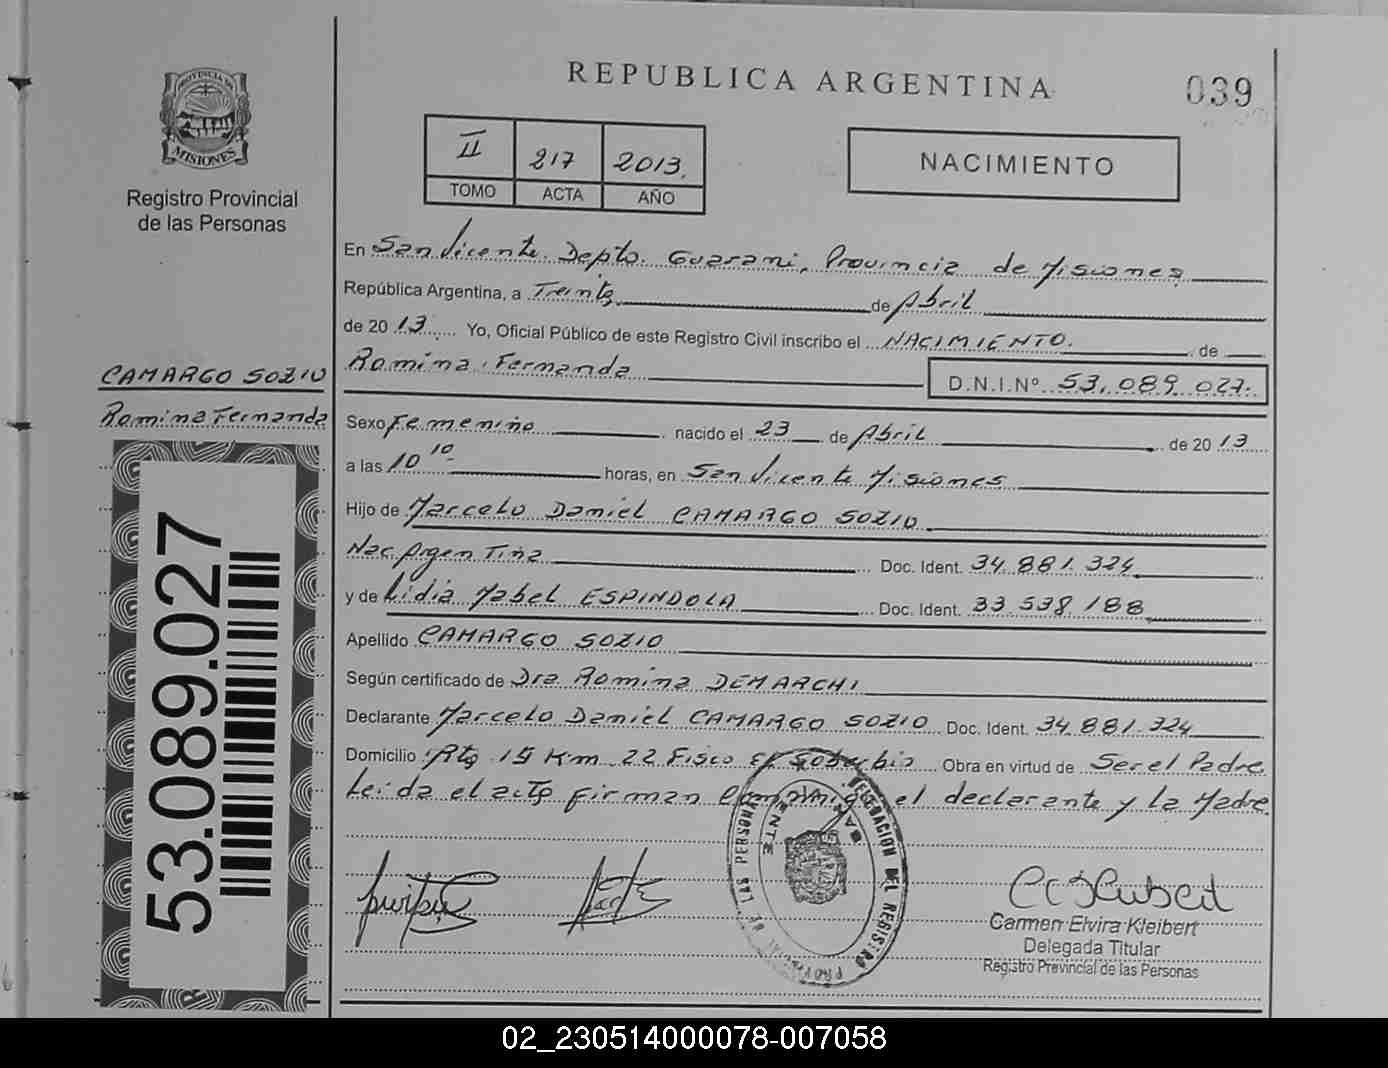 REPUBLICA ARGENTINA
039
PROVINCIA DE
MISIONES
Registro Provincial
de las Personas
II 217 2013
TOMO ACTA AÑO
NACIMIENTO
En San Vicente. Depto. Guarani, Provincia de Misiones
República Argentina, a Treinta de Abril
de 2013 Yo, Oficial Público de este Registro Civil inscribo el NACIMIENTO. de
Romina Fernanda D.N.I.Nº 53.089.027.
CAMARGO SOZIO
Romina Fernanda
Sexo Femenino nacido el 23 de Abril de 2013
a las 10 10 horas, en San Vicente Misiones
Hijo de Marcelo Daniel CAMARGO SOZIO
Nac Argentina Doc. Ident. 34.881.324
y de Lidia Mabel ESPINDOLA Doc. Ident. 33.538.188
Apellido CAMARGO SOZIO
Según certificado de Dra Romina DEMARCHI
Declarante Marcelo Daniel CAMARGO SOZIO Doc. Ident. 34.881.324
Domicilio Rta 15 Km 22 Fisco El Soberbio Obra en virtud de Ser el Padre
Leida el acta firman conmigo el declarante y la Madre
53.089.027
DELEGACION DEL REGISTRO
DE LAS PERSONAS
Carmen Elvira Kleibert
Delegada Titular
Registro Provincial de las Personas
02_230514000078-007058